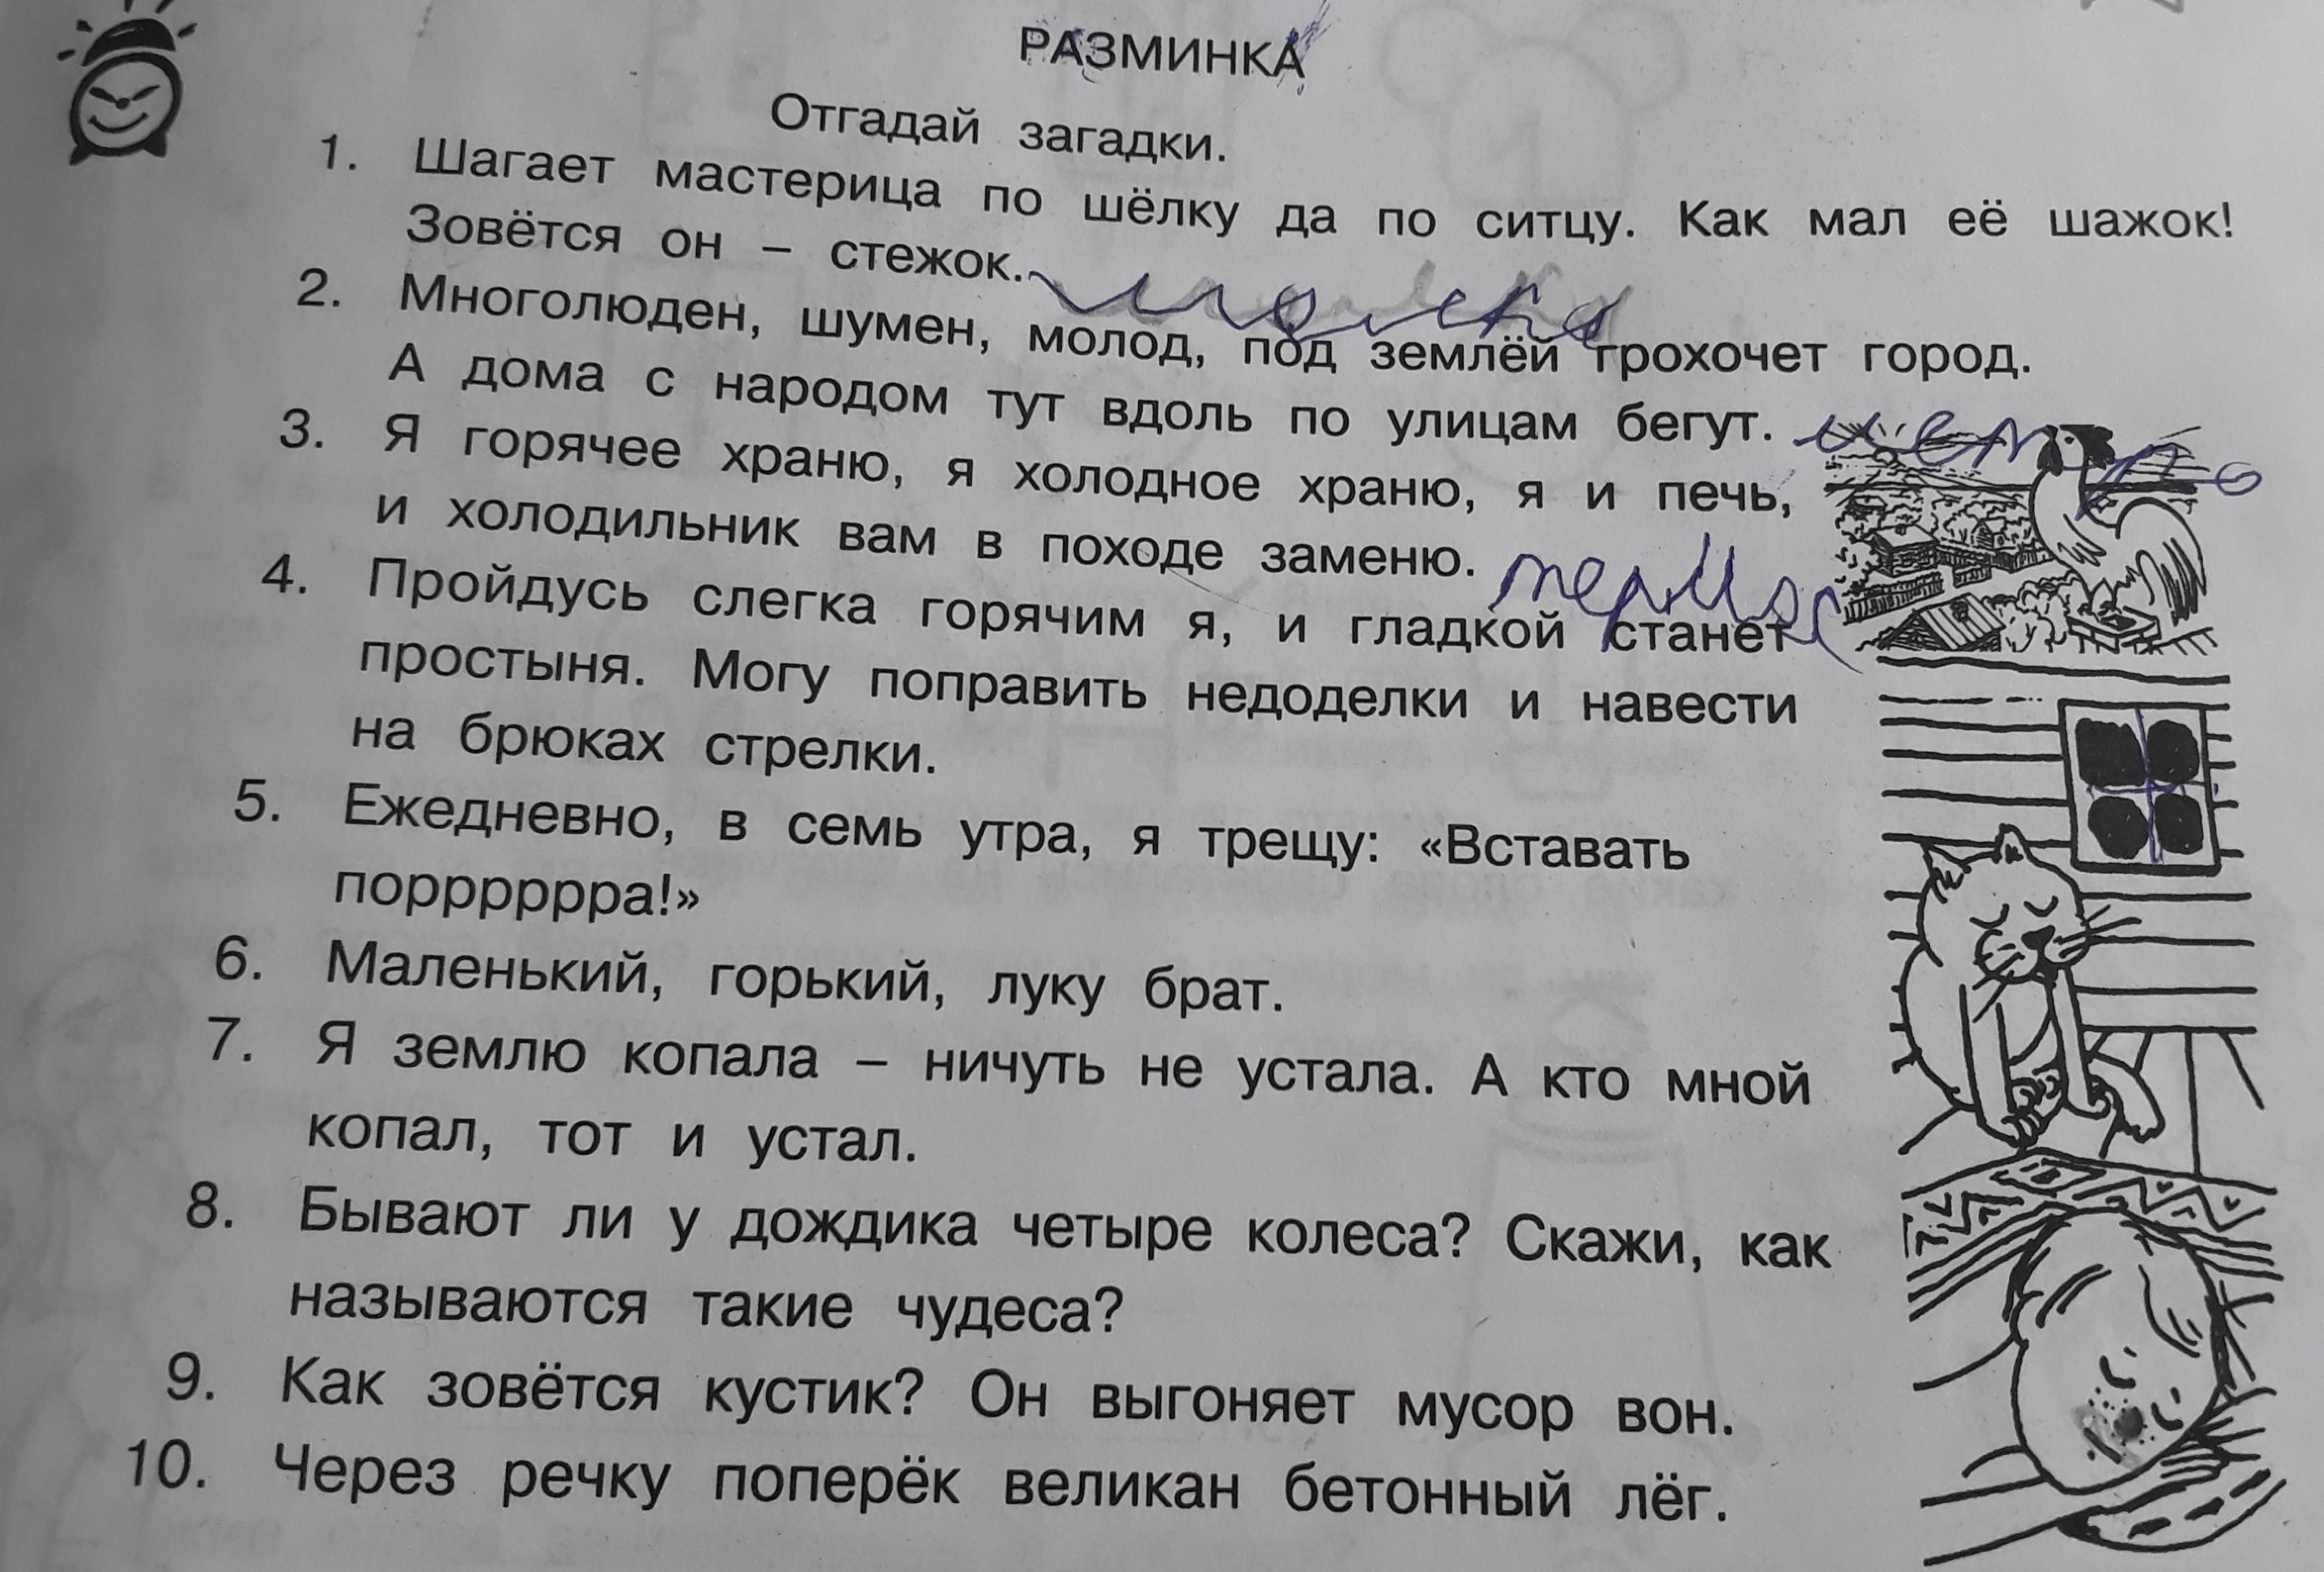 РАЗМИНКА
Отгадай загадки.
1. Шагает мастерица по шёлку да по ситцу. Как мал её шажок!
Зовётся он – стежок.
2. Многолюден, шумен, молод, под землёй грохочет город.
А дома с народом тут вдоль по улицам бегут. метро
3. Я горячее храню, я холодное храню, я и печь,
и холодильник вам в походе заменю. термос
4. Пройдусь слегка горячим я, и гладкой станет
простыня. Могу поправить недоделки и навести
на брюках стрелки.
5. Ежедневно, в семь утра, я трещу: «Вставать
порррррра!»
6. Маленький, горький, луку брат.
7. Я землю копала – ничуть не устала. А кто мной
копал, тот и устал.
8. Бывают ли у дождика четыре колеса? Скажи, как
называются такие чудеса?
9. Как зовётся кустик? Он выгоняет мусор вон.
10. Через речку поперёк великан бетонный лёг.